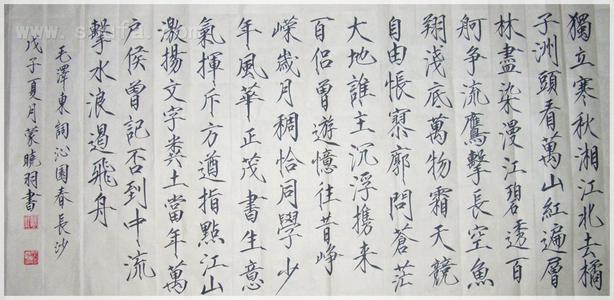 獨立寒秋湘江北去橘
子洲頭看萬山紅遍層
林盡染漫江碧透百
舸争流鷹擊長空魚
翔淺底萬物霜天競
自由悵寥廓問蒼茫
大地誰主沉浮携来
百侣曾遊憶往昔崢
嶸歲月稠恰同學少
年風華正茂書生意
氣揮斥方遒指點江山
激揚文字糞土當年萬
户侯曾記否到中流
擊水浪遏飛舟
毛澤東詞沁園春長沙
戊子夏月蒙曉羽書